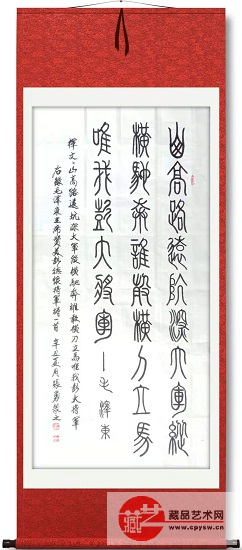 山高路遠阬深大軍縱
橫馳奔誰敢橫刀立馬
唯我彭大將軍—毛澤東
釋文:山高路遠坑深大軍縱橫馳奔誰敢橫刀立馬唯我彭大將軍
右錄毛澤東主席贊美彭德懷將軍詩一首 辛丑夏月張勇錄之
藏品艺术网
www.cpysw.cn